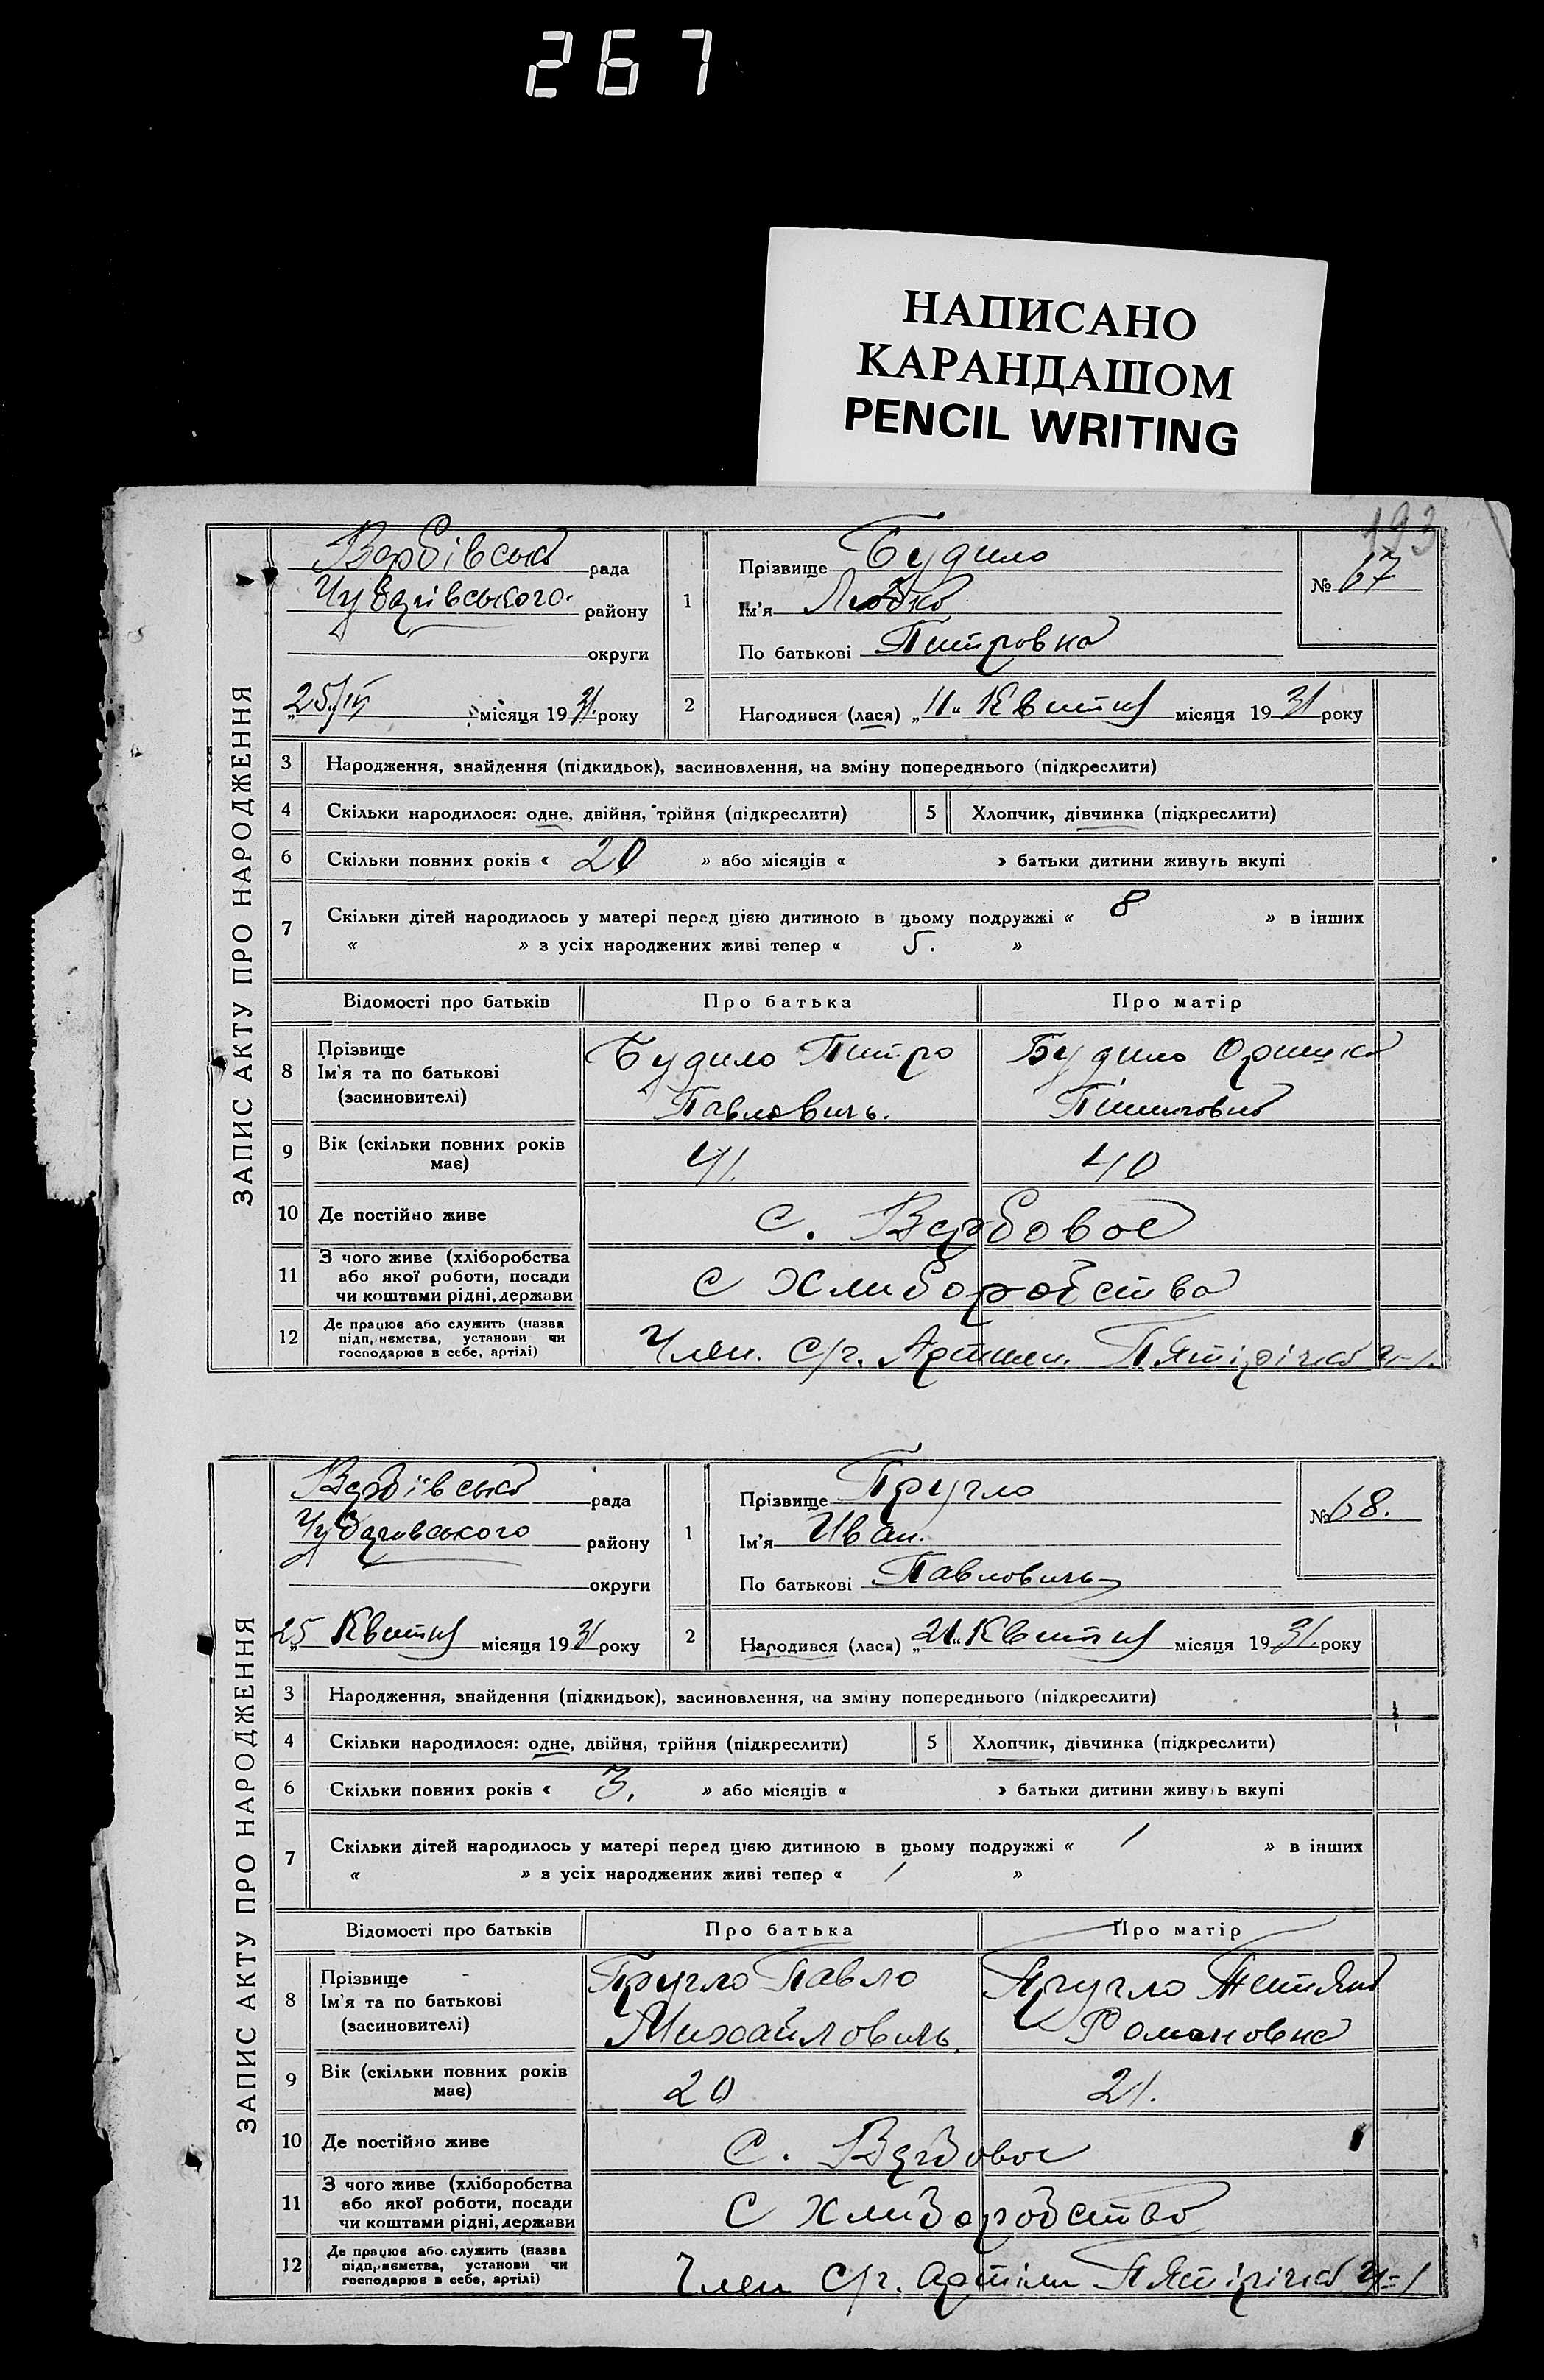 267
НАПИСАНО
КАРАНДАШОМ
PENCIL WRITING
193
ЗАПИС АКТУ ПРО НАРОДЖЕННЯ
Вербівська рада
Чубарівського району
округи
25/IV місяця 1931 року
1 Прізвище Будило
Ім'я Любка
По батькові Питровна
№ 67
2 Народився (лася) „11" Квитня місяця 1931 року
3 Народження, знайдення (підкидьок), засиновлення, на зміну попереднього (підкреслити)
4 Скільки народилося: одне, двійня, трійня (підкреслити) 5 Хлопчик, дівчинка (підкреслити)
6 Скільки повних років « 20 » або місяців « » батьки дитини живуть вкупі
7 Скільки дітей народилось у матері перед цією дитиною в цьому подружжі « 8 » в інших
« » з усіх народжених живі тепер « 5. »
Відомості про батьків Про батька Про матір
8 Прізвище
Ім'я та по батькові
(засиновителі)
Будило Питро
Павловичь.
Будило Оришка
9 Вік (скільки повних років
має)
41. 40
10 Де постійно живе с. Вербовое
11 З чого живе (хліборобства
або якої роботи, посади
чи коштами рідні, держави
С Хлиборобства
12 Де працює або служить (назва
підприємства, установи чи
господарює в себе, артілі)
Член. С/г. Артили. Пятірічка
ЗАПИС АКТУ ПРО НАРОДЖЕННЯ
Вербівська рада
Чубаривського району
округи
25 Квитня місяця 1931 року
1 Прізвище Пругло
Ім'я Иван.
По батькові Павловичь
№ 68.
2 Народився (лася) „21" Квитня місяця 1931 року
3 Народження, знайдення (підкидьок), засиновлення, на зміну попереднього (підкреслити)
4 Скільки народилося: одне, двійня, трійня (підкреслити) 5 Хлопчик, дівчинка (підкреслити)
6 Скільки повних років « 3. » або місяців « » батьки дитини живуть вкупі
7 Скільки дітей народилось у матері перед цією дитиною в цьому подружжі « 1 » в інших
« » з усіх народжених живі тепер « 1 »
Відомості про батьків Про батька Про матір
8 Прізвище
Ім'я та по батькові
(засиновителі)
Пругло Павло
Михайловичь.
Пругло Тетяна
Романовна
9 Вік (скільки повних років
має)
20 21.
10 Де постійно живе С. Вербовое
11 З чого живе (хліборобства
або якої роботи, посади
чи коштами рідні, держави
С Хлиборобства
12 Де працює або служить (назва
підприємства, установи чи
господарює в себе, артілі)
Член С/г. Артіли Пятірічка